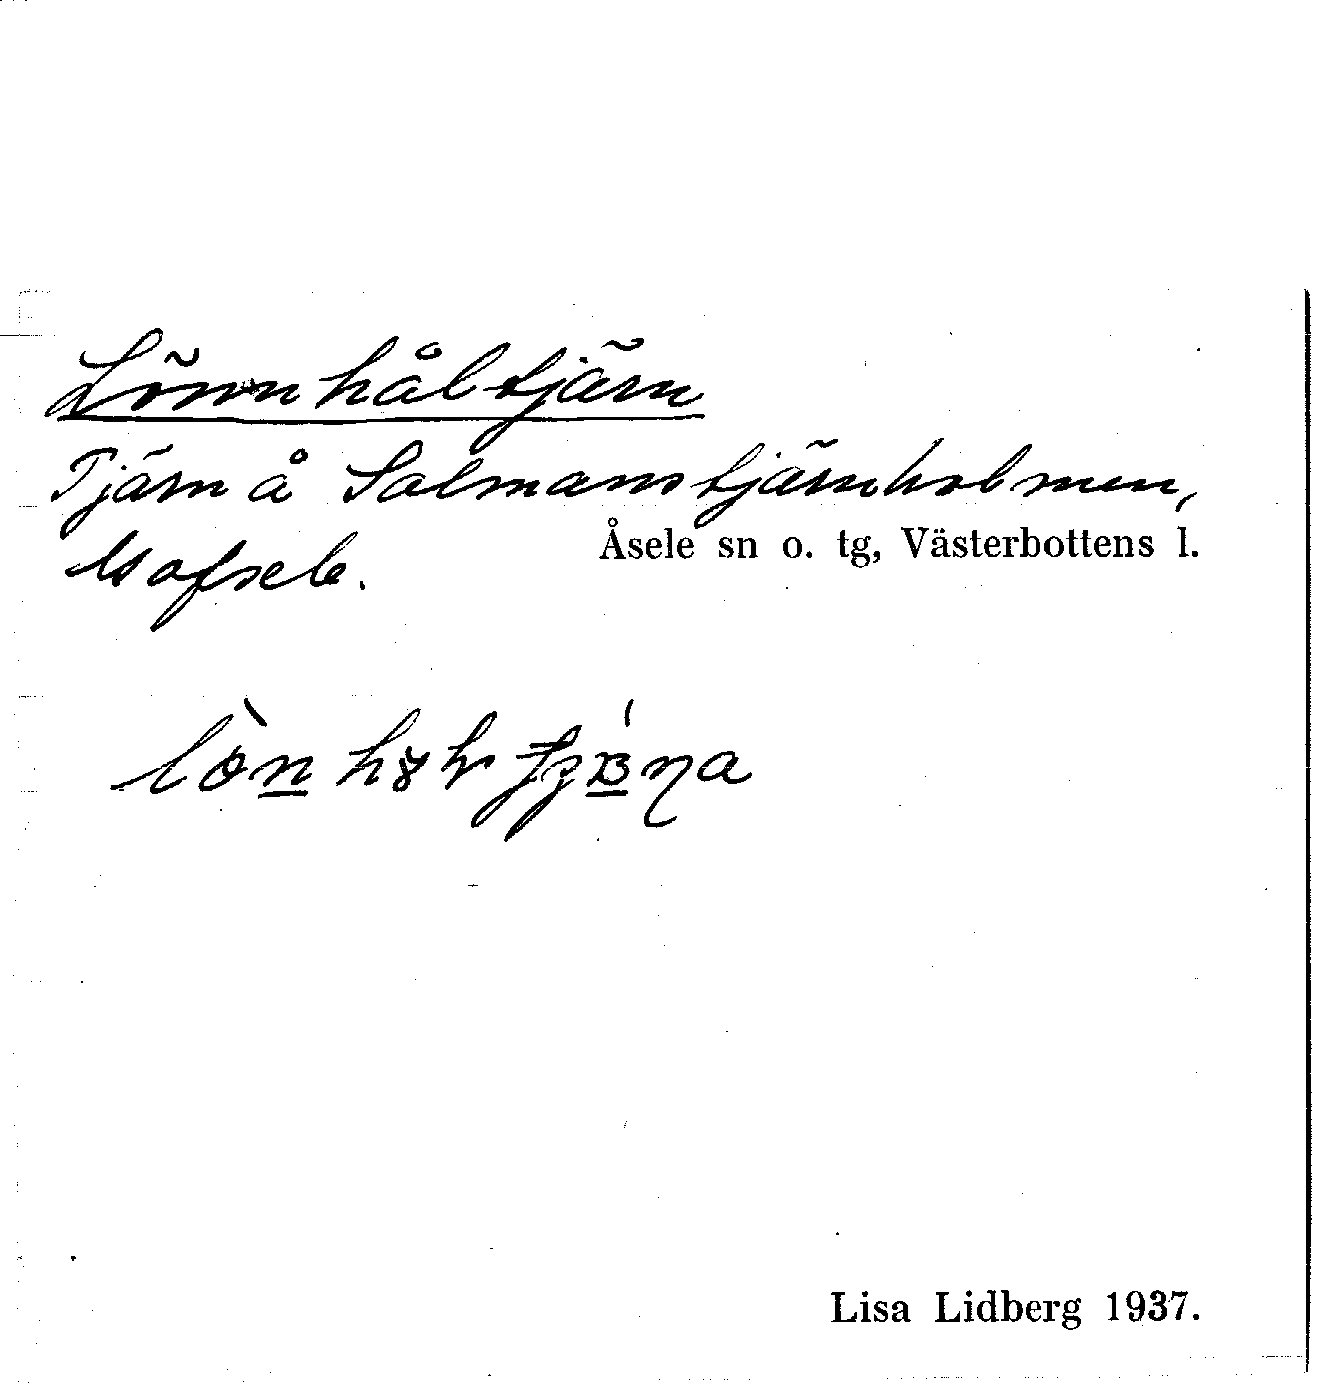 Lönnhåltjärn
Tjärn å Salmanstjärnholmen,
Gafsele.
Åsele sn o. tg, Västerbottens l.
Lisa Lidberg 1937.